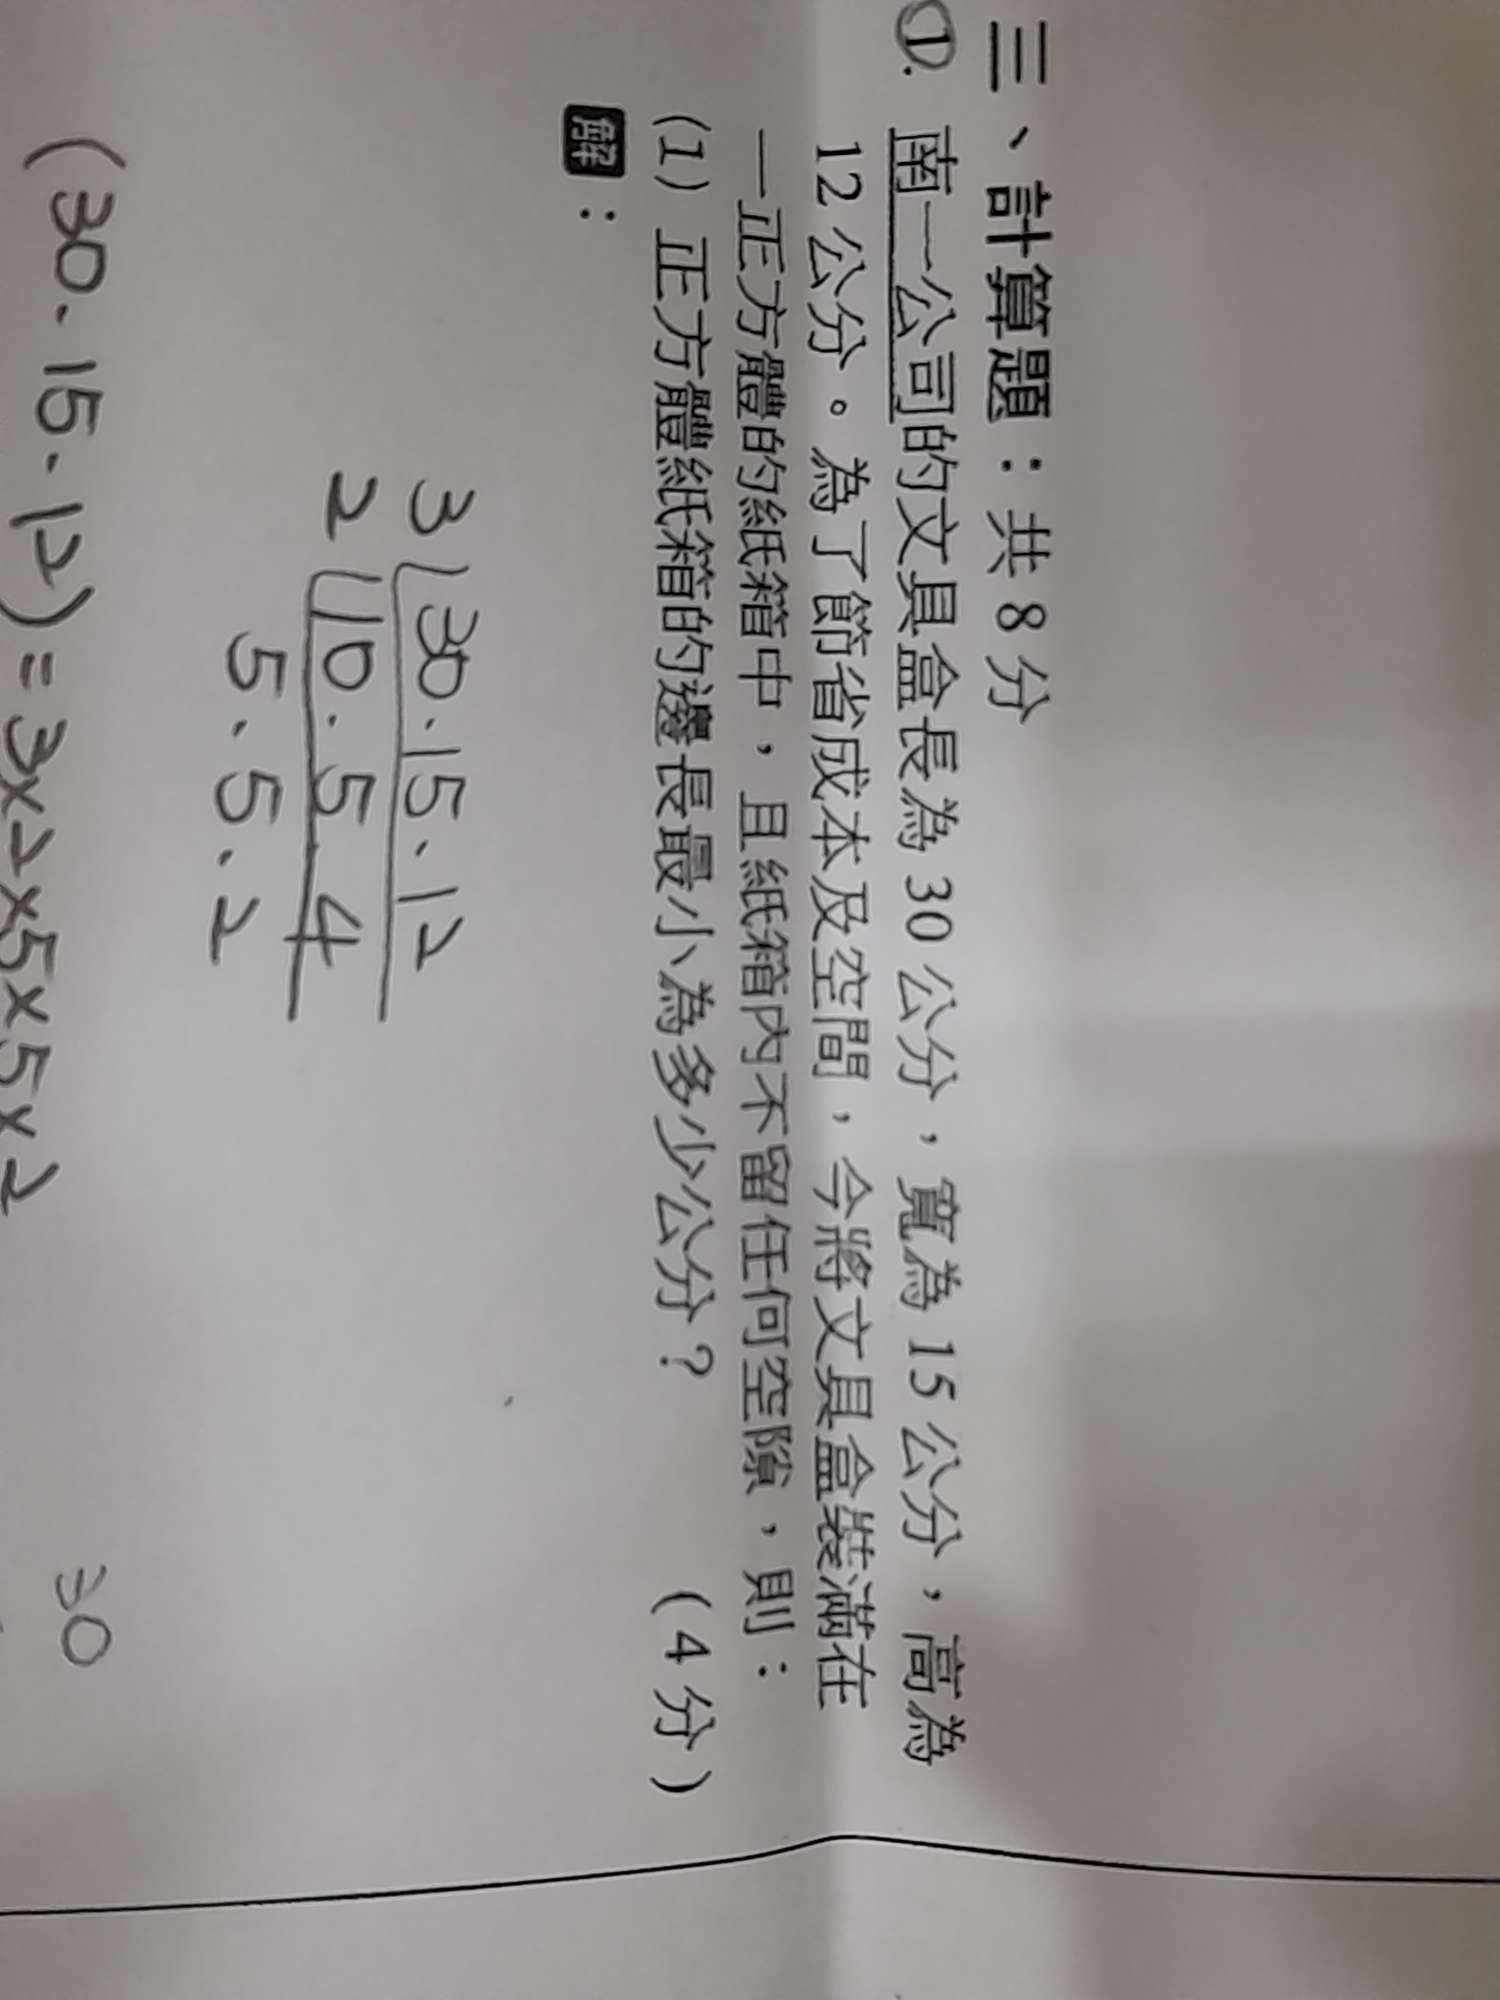 三、計算題：共 8 分
1. 南一公司的文具盒長為 30 公分，寬為 15 公分，高為
12 公分。為了節省成本及空間，今將文具盒裝滿在
一正方體的紙箱中，且紙箱內不留任何空隙，則：
(1) 正方體紙箱的邊長最小為多少公分？ (4 分)
解：
3 30.15.12
2 10.5.4
5.5.2
(30.15.12)=3×2×5×5×2
30